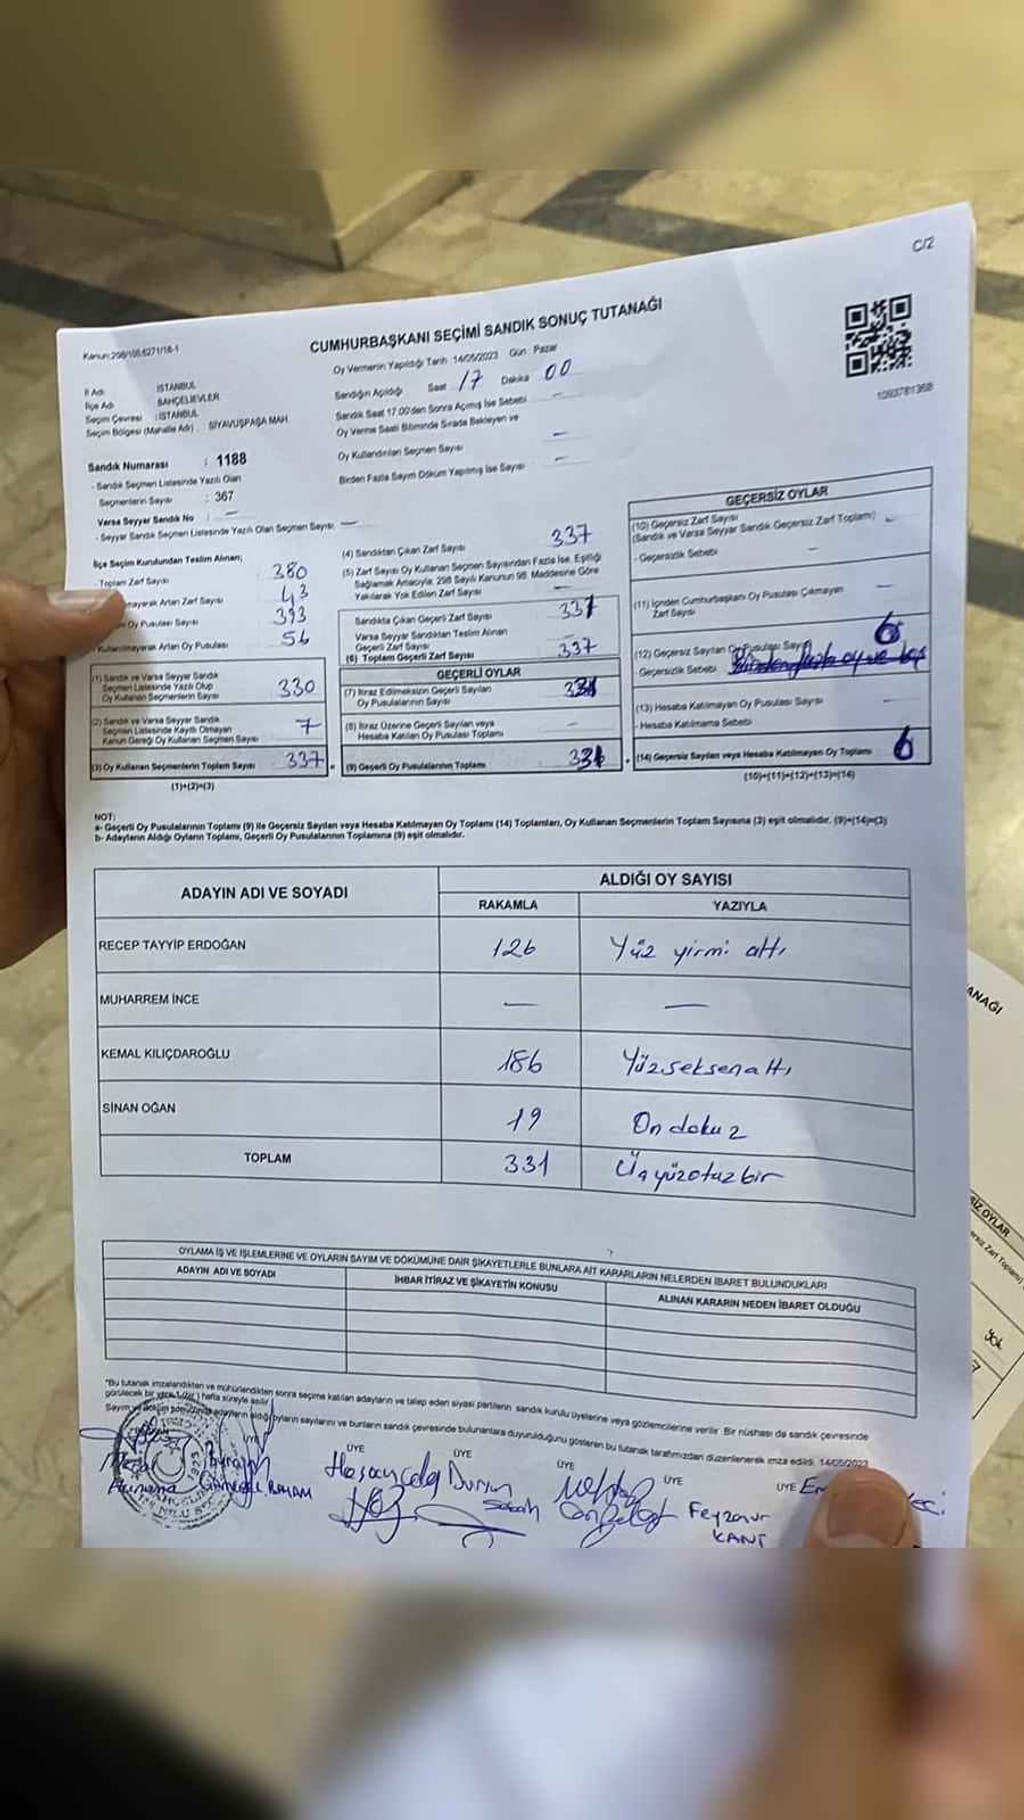 C/2
Kanun:298/108,6271/16-1
CUMHURBAŞKANI SEÇİMİ SANDIK SONUÇ TUTANAĞI
Oy Vermenin Yapıldığı Tarih :14/05/2023 Gün : Pazar
İl Adı : İSTANBUL
İlçe Adı : BAHÇELİEVLER
Seçim Çevresi : İSTANBUL
Seçim Bölgesi (Mahalle Adı) : SİYAVUŞPAŞA MAH.
Sandığın Açıldığı Saat 17 Dakika 00
Sandık Saat 17.00'den Sonra Açılmış İse Sebebi —
Oy Verme Saati Bitiminde Sırada Bekleyen ve
Oy Kullandırılan Seçmen Sayısı —
Birden Fazla Sayım Döküm Yapılmış İse Sayısı —
1093781368
Sandık Numarası : 1188
- Sandık Seçmen Listesinde Yazılı Olan
Seçmenlerin Sayısı : 367
Varsa Seyyar Sandık No : —
- Seyyar Sandık Seçmen Listesinde Yazılı Olan Seçmen Sayısı: —
İlçe Seçim Kurulundan Teslim Alınan;
- Toplam Zarf Sayısı 380
Artan Zarf Sayısı 43
Oy Pusulası Sayısı 393
Kullanılmayarak Artan Oy Pusulası 56
(1) Sandık ve Varsa Seyyar Sandık
Seçmen Listesinde Yazılı Olup
Oy Kullanan Seçmenlerin Sayısı 330
(2) Sandık ve Varsa Seyyar Sandık
Seçmen Listesinde Kayıtlı Olmayan
Kanun Gereği Oy Kullanan Seçmen Sayısı 7
(3) Oy Kullanan Seçmenlerin Toplam Sayısı 337
(1)+(2)=(3)
(4) Sandıktan Çıkan Zarf Sayısı 337
(5) Zarf Sayısı Oy Kullanan Seçmen Sayısından Fazla İse, Eşitliği
Sağlamak Amacıyla; 298 Sayılı Kanunun 98. Maddesine Göre
Yakılarak Yok Edilen Zarf Sayısı —
Sandıkta Çıkan Geçerli Zarf Sayısı 337
Varsa Seyyar Sandıktan Teslim Alınan
Geçerli Zarf Sayısı —
(6) Toplam Geçerli Zarf Sayısı 337
GEÇERLİ OYLAR
(7) İtiraz Edilmeksizin Geçerli Sayılan
Oy Pusulalarının Sayısı 331
(8) İtiraz Üzerine Geçerli Sayılan veya
Hesaba Katılan Oy Pusulası Toplamı —
(9) Geçerli Oy Pusulalarının Toplamı 331
GEÇERSİZ OYLAR
(10) Geçersiz Zarf Sayısı
(Sandık ve Varsa Seyyar Sandık Geçersiz Zarf Toplamı) —
- Geçersizlik Sebebi —
(11) İçinden Cumhurbaşkanı Oy Pusulası Çıkmayan
Zarf Sayısı —
(12) Geçersiz Sayılan Oy Pusulası Sayısı 6
Geçersizlik Sebebi
(13) Hesaba Katılmayan Oy Pusulası Sayısı —
- Hesaba Katılmama Sebebi
(14) Geçersiz Sayılan veya Hesaba Katılmayan Oy Toplamı 6
(10)+(11)+(12)+(13)=(14)
NOT:
a- Geçerli Oy Pusulalarının Toplamı (9) ile Geçersiz Sayılan veya Hesaba Katılmayan Oy Toplamı (14) Toplamları, Oy Kullanan Seçmenlerin Toplam Sayısına (3) eşit olmalıdır. (9)+(14)=(3)
b- Adayların Aldığı Oyların Toplamı, Geçerli Oy Pusulalarının Toplamına (9) eşit olmalıdır.
ADAYIN ADI VE SOYADI
ALDIĞI OY SAYISI
RAKAMLA YAZIYLA
RECEP TAYYİP ERDOĞAN 126 Yüz yirmi altı
MUHARREM İNCE — —
KEMAL KILIÇDAROĞLU 186 Yüzseksenaltı
SİNAN OĞAN 19 On dokuz
TOPLAM 331 Üçyüzotuzbir
OYLAMA İŞ VE İŞLEMLERİNE VE OYLARIN SAYIM VE DÖKÜMÜNE DAİR ŞİKAYETLERLE BUNLARA AİT KARARLARIN NELERDEN İBARET BULUNDUKLARI
ADAYIN ADI VE SOYADI
İHBAR İTİRAZ VE ŞİKAYETİN KONUSU
ALINAN KARARIN NEDEN İBARET OLDUĞU
"Bu tutanak imzalandıktan ve mühürlendikten sonra seçime katılan adayların ve talep eden siyasi partilerin sandık kurulu üyelerine veya gözlemcilerine verilir. Bir nüshası da sandık çevresinde
görülecek bir yere hafta süreyle asılır
oyların sayılarını ve bunların sandık çevresinde bulunanlara duyurulduğunu gösteren bu tutanak tarafımızdan düzenlenerek imza edildi. 14/05/2023
ÜYE ÜYE ÜYE ÜYE ÜYE ÜYE
Feyzanur
KANT
ANAĞI
SİZ OYLAR
yok